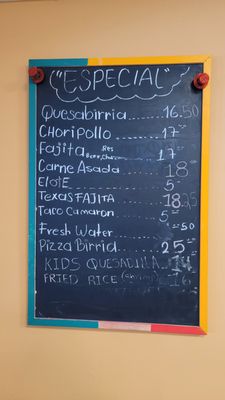 "ESPECIAL"
Quesabirria........16.50
CHORiPollo.........17
Fajita Res ........17
Carne Asada........18
ElotE..............5
TexasFAJITA........18.25
Taco Camaron.......5
Fresh Water........50
Pizza Birria.......25
KIDS QUESADILLA
FRIED RICE 16